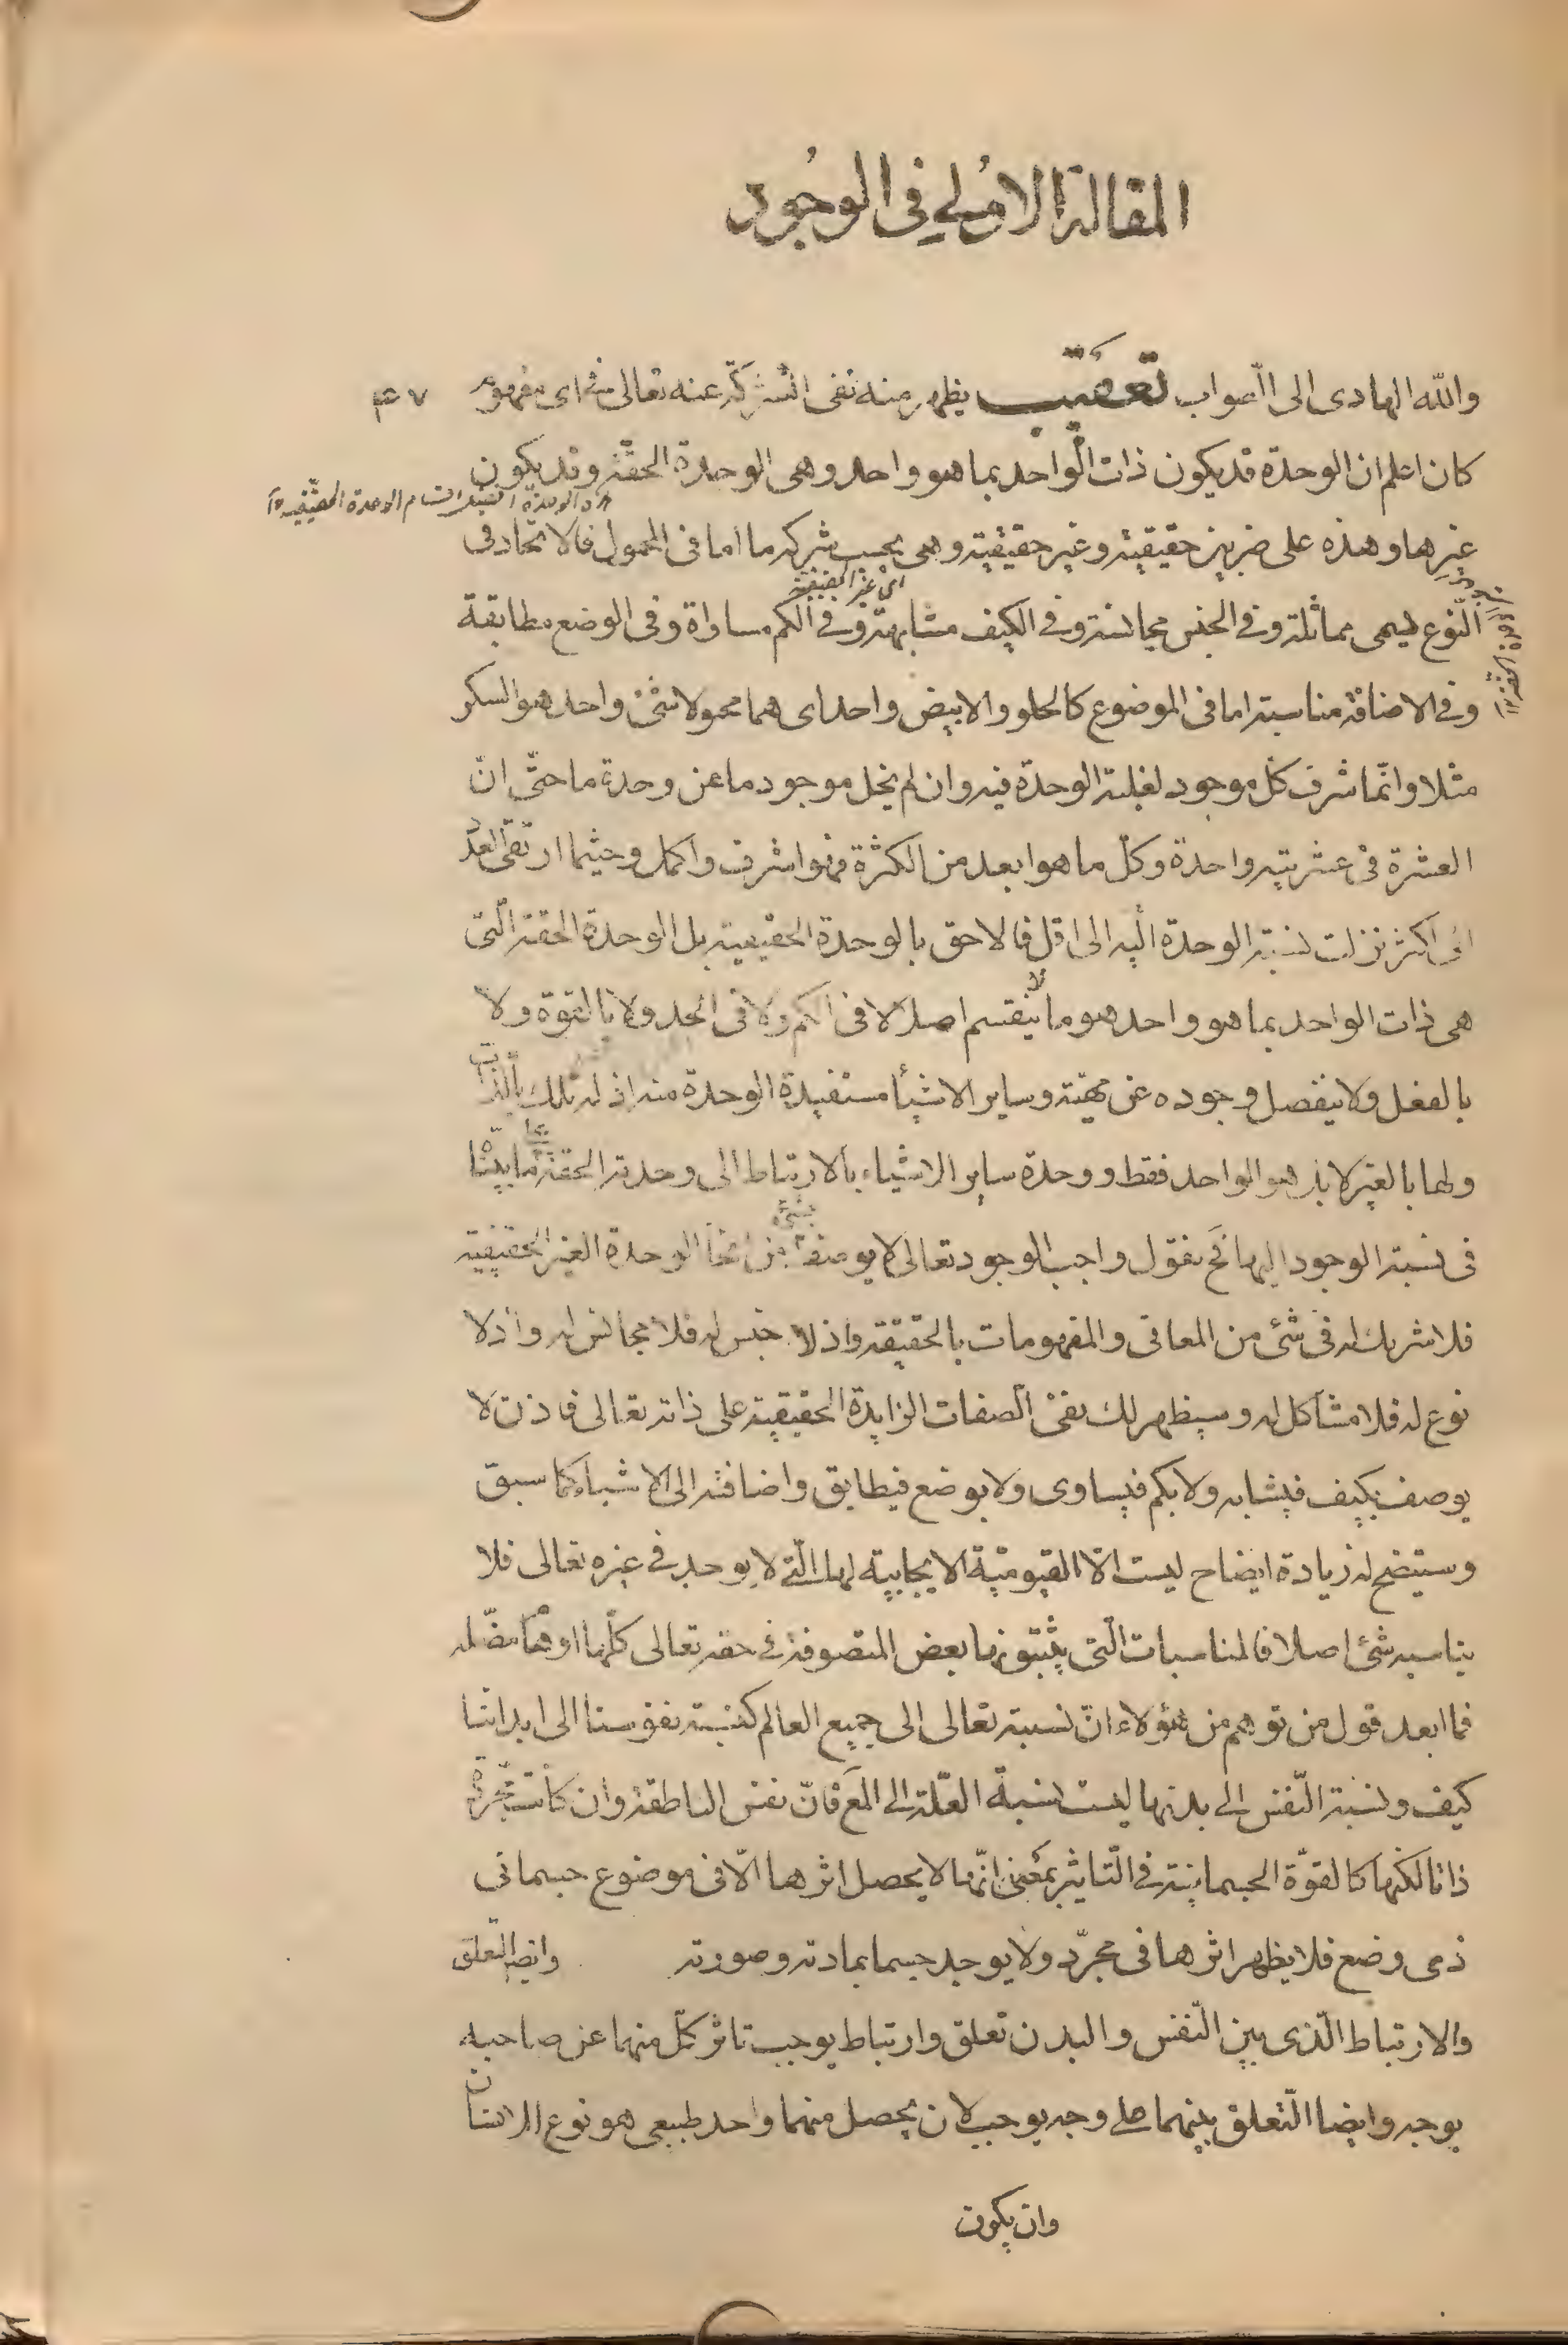 المقالة الاولى فى الوجود
والله الهادى الى الصواب تعقيب يظهر منه نفى الشركة عنه تعالى فى اى مفهوم ۴۷
كان اعلم ان الوحدة قد يكون ذات الواحد بما هو واحد وهى الوحدة الحقة وقد يكون
اقسام الوحدة الحقيقية
غيرها وهذه على ضربين حقيقية وغير حقيقية وهى بحسب شركة ما اما فى المحمول فالاتحاد فى
اى غير الحقيقية
النوع يسمى مماثلة وفى الجنس مجانسة وفى الكيف مشابهة وفى الكم مساواة وفى الوضع مطابقة
وفى الاضافة مناسبة اما فى الموضوع كالحلو والابيض واحد اى هما محمولا شئ واحد هو السكر
مثلا وانّما شرف كلّ موجود لغلبة الوحدة فيه وان لم يخل موجود ما عن وحدة ما حتّى انّ
العشرة فى عشريته واحدة وكلّ ما هو ابعد من الكثرة فهو اشرف واكمل وحيثما ارتقى العدد
الى اكثر نزلت نسبة الوحدة اليه الى اقل فالاحق بالوحدة الحقيقية بل الوحدة الحقة الّتى
هى ذات الواحد بما هو واحد هو ما لا ينقسم اصلا لا فى الكم ولا فى الحد ولا بالقوة ولا
بالفعل ولا ينفصل وجوده عن مهيّته وساير الاشيأ مستفيدة الوحدة منه اذ له تلك بالذات
ولها بالغير لا بذ هو الواحد فقط ووحدة ساير الاشياء بالارتباط الى وحدته الحقة كما بيّنّاه
فى نسبة الوجود اليها فح نقول واجب الوجود تعالى لا يوصف بشئ من انحأ الوحدة الغير الحقيقية
فلا شريك له فى شئ من المعانى والمفهومات بالحقيقة واذ لا جنس له فلا مجانس له واذ لا
نوع له فلا مشاكل له وسيظهر لك نفى الصفات الزايدة الحقيقية على ذاته تعالى فاذن لا
يوصف بكيف فيشابه ولا بكم فيساوى ولا بوضع فيطابق واضافته الى الاشياء كما سبق
وستيضح له زيادة ايضاح ليست الّا القيوميّة الايجابية لها الّتى لا يوجد فى غيره تعالى فلا
يناسبه شئ اصلا فالمناسبات الّتى يثبتونها بعض المتصوفة فى حقه تعالى كلّها اوهام مضّله
فما ابعد قول من توهم من هؤلاء انّ نسبته تعالى الى جميع العالم كنسبة نفوسنا الى ابداننا
كيف ونسبة النّفس الى بدنها ليست نسبة العّلة الى المع فانّ نفس الناطقة وان كانت مجرّدة
ذاتا لكنها كالقوّة الجسمانية فى التاثير بمعنى انّها لا يحصل اثرها الّا فى موضوع جسمانى
ذى وضع فلا يظهر اثرها فى مجرّد ولا يوجد جسما بمادته وصورته وايضا التعلق
والارتباط الّذى بين النّفس والبدن تعلق وارتباط يوجب تاثر كلّ منهما عن صاحبه
بوجه وايضا التعلق بينهما على وجه يوجب لان يحصل منهما واحد طبيعى هو نوع الانسان
وان يكون